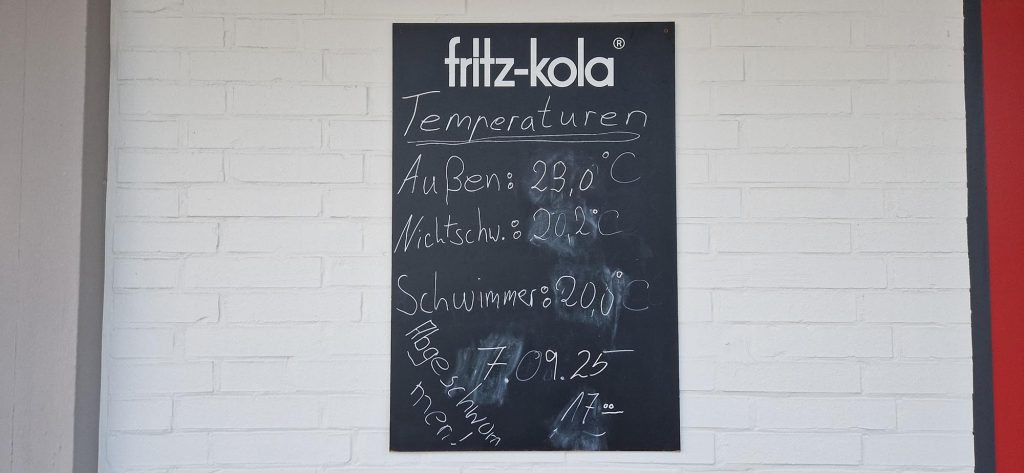 fritz-kola®
Temperaturen
Außen: 23,0°C
Nichtschw.: 20,2°C
Schwimmer: 20,0°C
7.09.25
17⁰⁰
Abgeschwom
men!